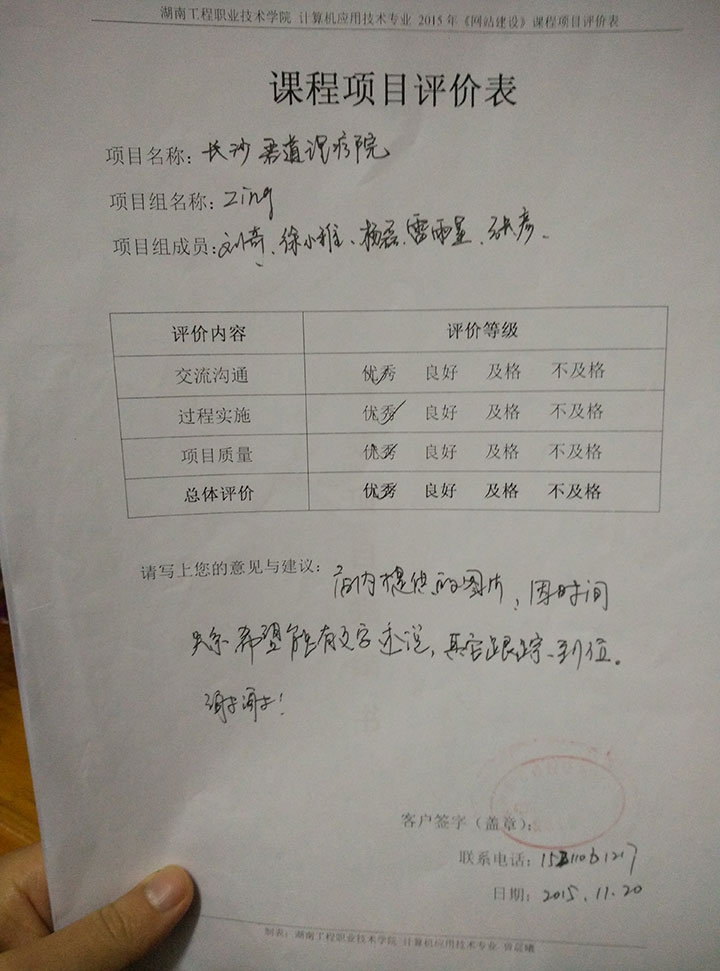 湖南工程职业技术学院 计算机应用技术专业 2015年《网站建设》课程项目评价表
课程项目评价表
项目名称: 长沙君道理疗院
项目组名称: Zing
项目组成员: 刘奇、徐小雅、杨磊、雷雨星、张彦、
评价内容 评价等级
交流沟通 优秀 良好 及格 不及格
过程实施 优秀 良好 及格 不及格
项目质量 优秀 良好 及格 不及格
总体评价 优秀 良好 及格 不及格
请写上您的意见与建议: 店内提供的图片, 因时间
关系希望能有文字述说, 其它跟踪到位。
谢谢!
客户签字(盖章):
联系电话:
日期: 2015.11.20
制表: 湖南工程职业技术学院 计算机应用技术专业